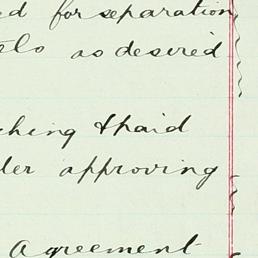 ed for separation
as desired
ching & paid
der approving
Agreement